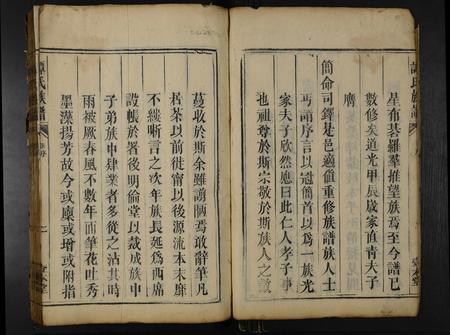 星布碁羅羣推望族焉至今譜已
數修矣道光甲辰歲家直青夫子
膺
簡命司鐸是邑適值重修族譜族人士
丐請序言以冠簡首以爲一族光
家夫子欣然應曰此仁人孝子事
也祖尊於斯宗敬於斯族人之散
蔓收於斯余雖譾陋焉敢辭筆凡
若茶以前徙甯以後源流本末靡
不縷晰言之次年族長延爲西席
設帳於署後明倫堂以裁成族中
子弟族中肄業者多從之沾其時
雨被厥春風不數年而筆花吐秀
墨藻揚芳故今或廩或增或附指
譚氏族譜